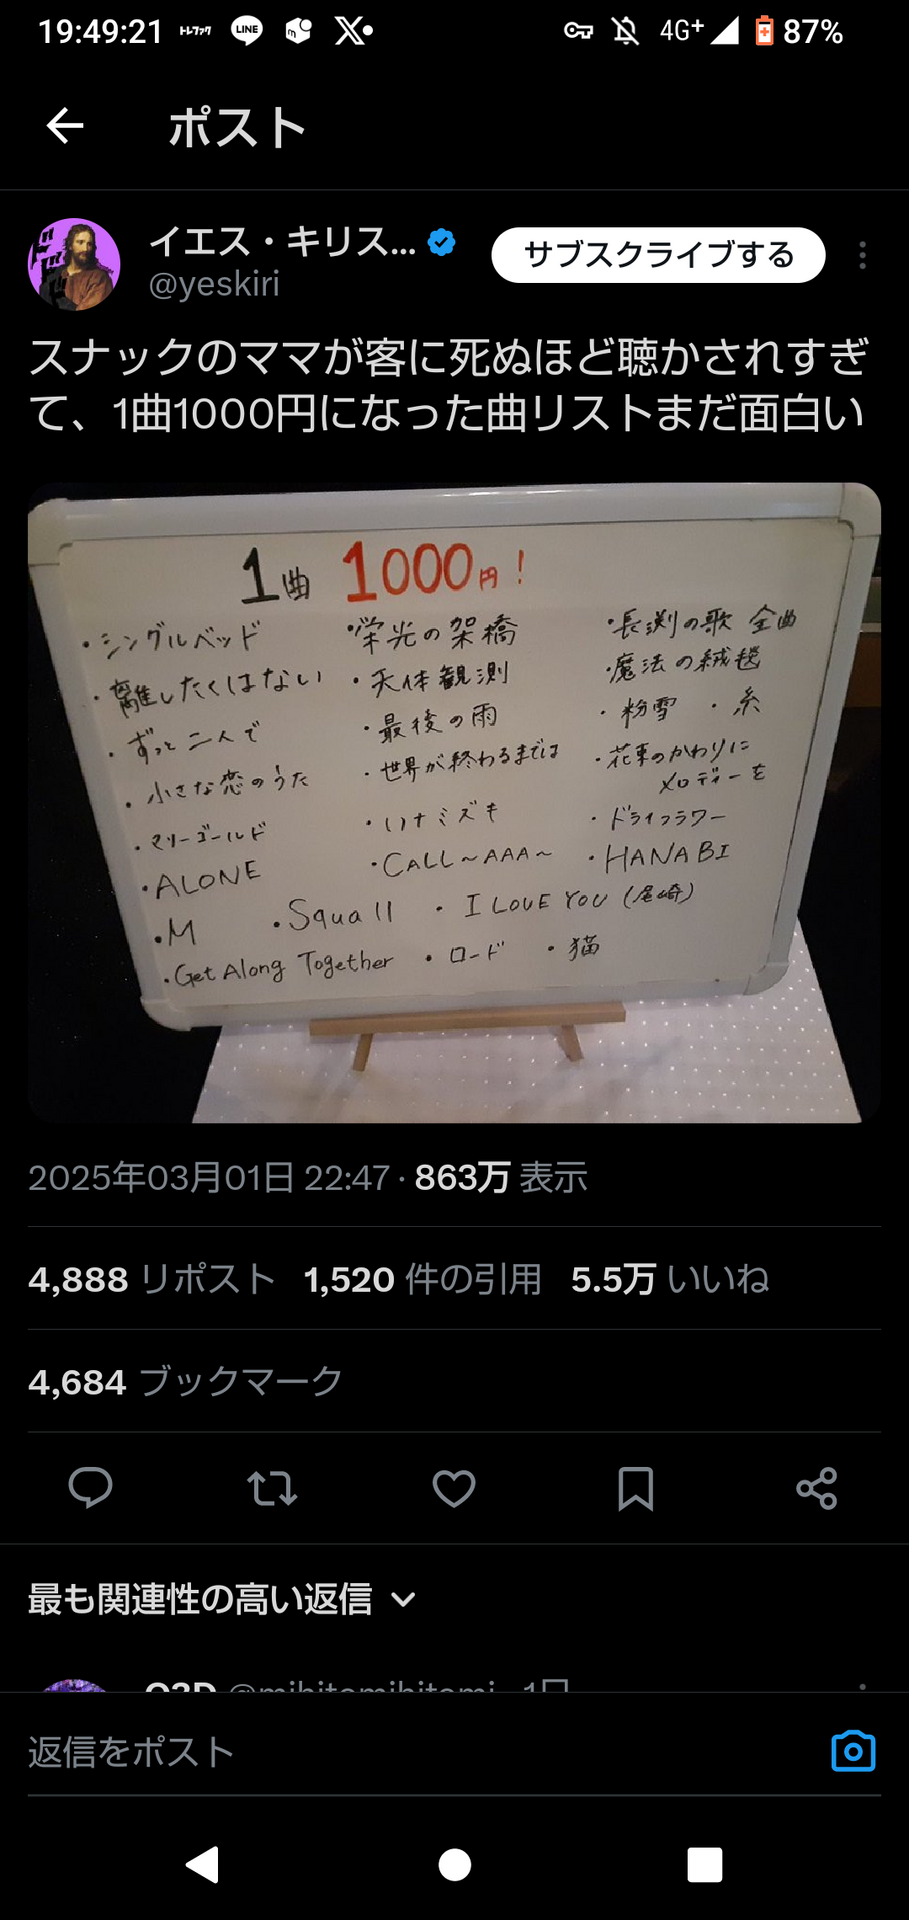 19:49:21 トレファク LINE m X 4G+ 87%
ポスト
イエス・キリス...
サブスクライブする
@yeskiri
スナックのママが客に死ぬほど聴かされすぎ
て、1曲1000円になった曲リストまだ面白い
1曲 1000円!
・シングルベッド ・栄光の架橋 ・長渕の歌 全曲
・離したくはない ・天体観測 ・魔法の絨毯
・ずっと二人で ・最後の雨 ・粉雪 ・糸
・小さな恋のうた ・世界が終わるまでは ・花束のかわりに
メロディーを
・マリーゴールド ・ハナミズキ ・ドライフラワー
・ALONE ・CALL～AAA～ ・HANABI
・M ・Squall ・I LOVE YOU (尾崎)
・Get Along Together ・ロード ・猫
2025年03月01日 22:47・863万 表示
4,888 リポスト 1,520 件の引用 5.5万 いいね
4,684 ブックマーク
最も関連性の高い返信
返信をポスト